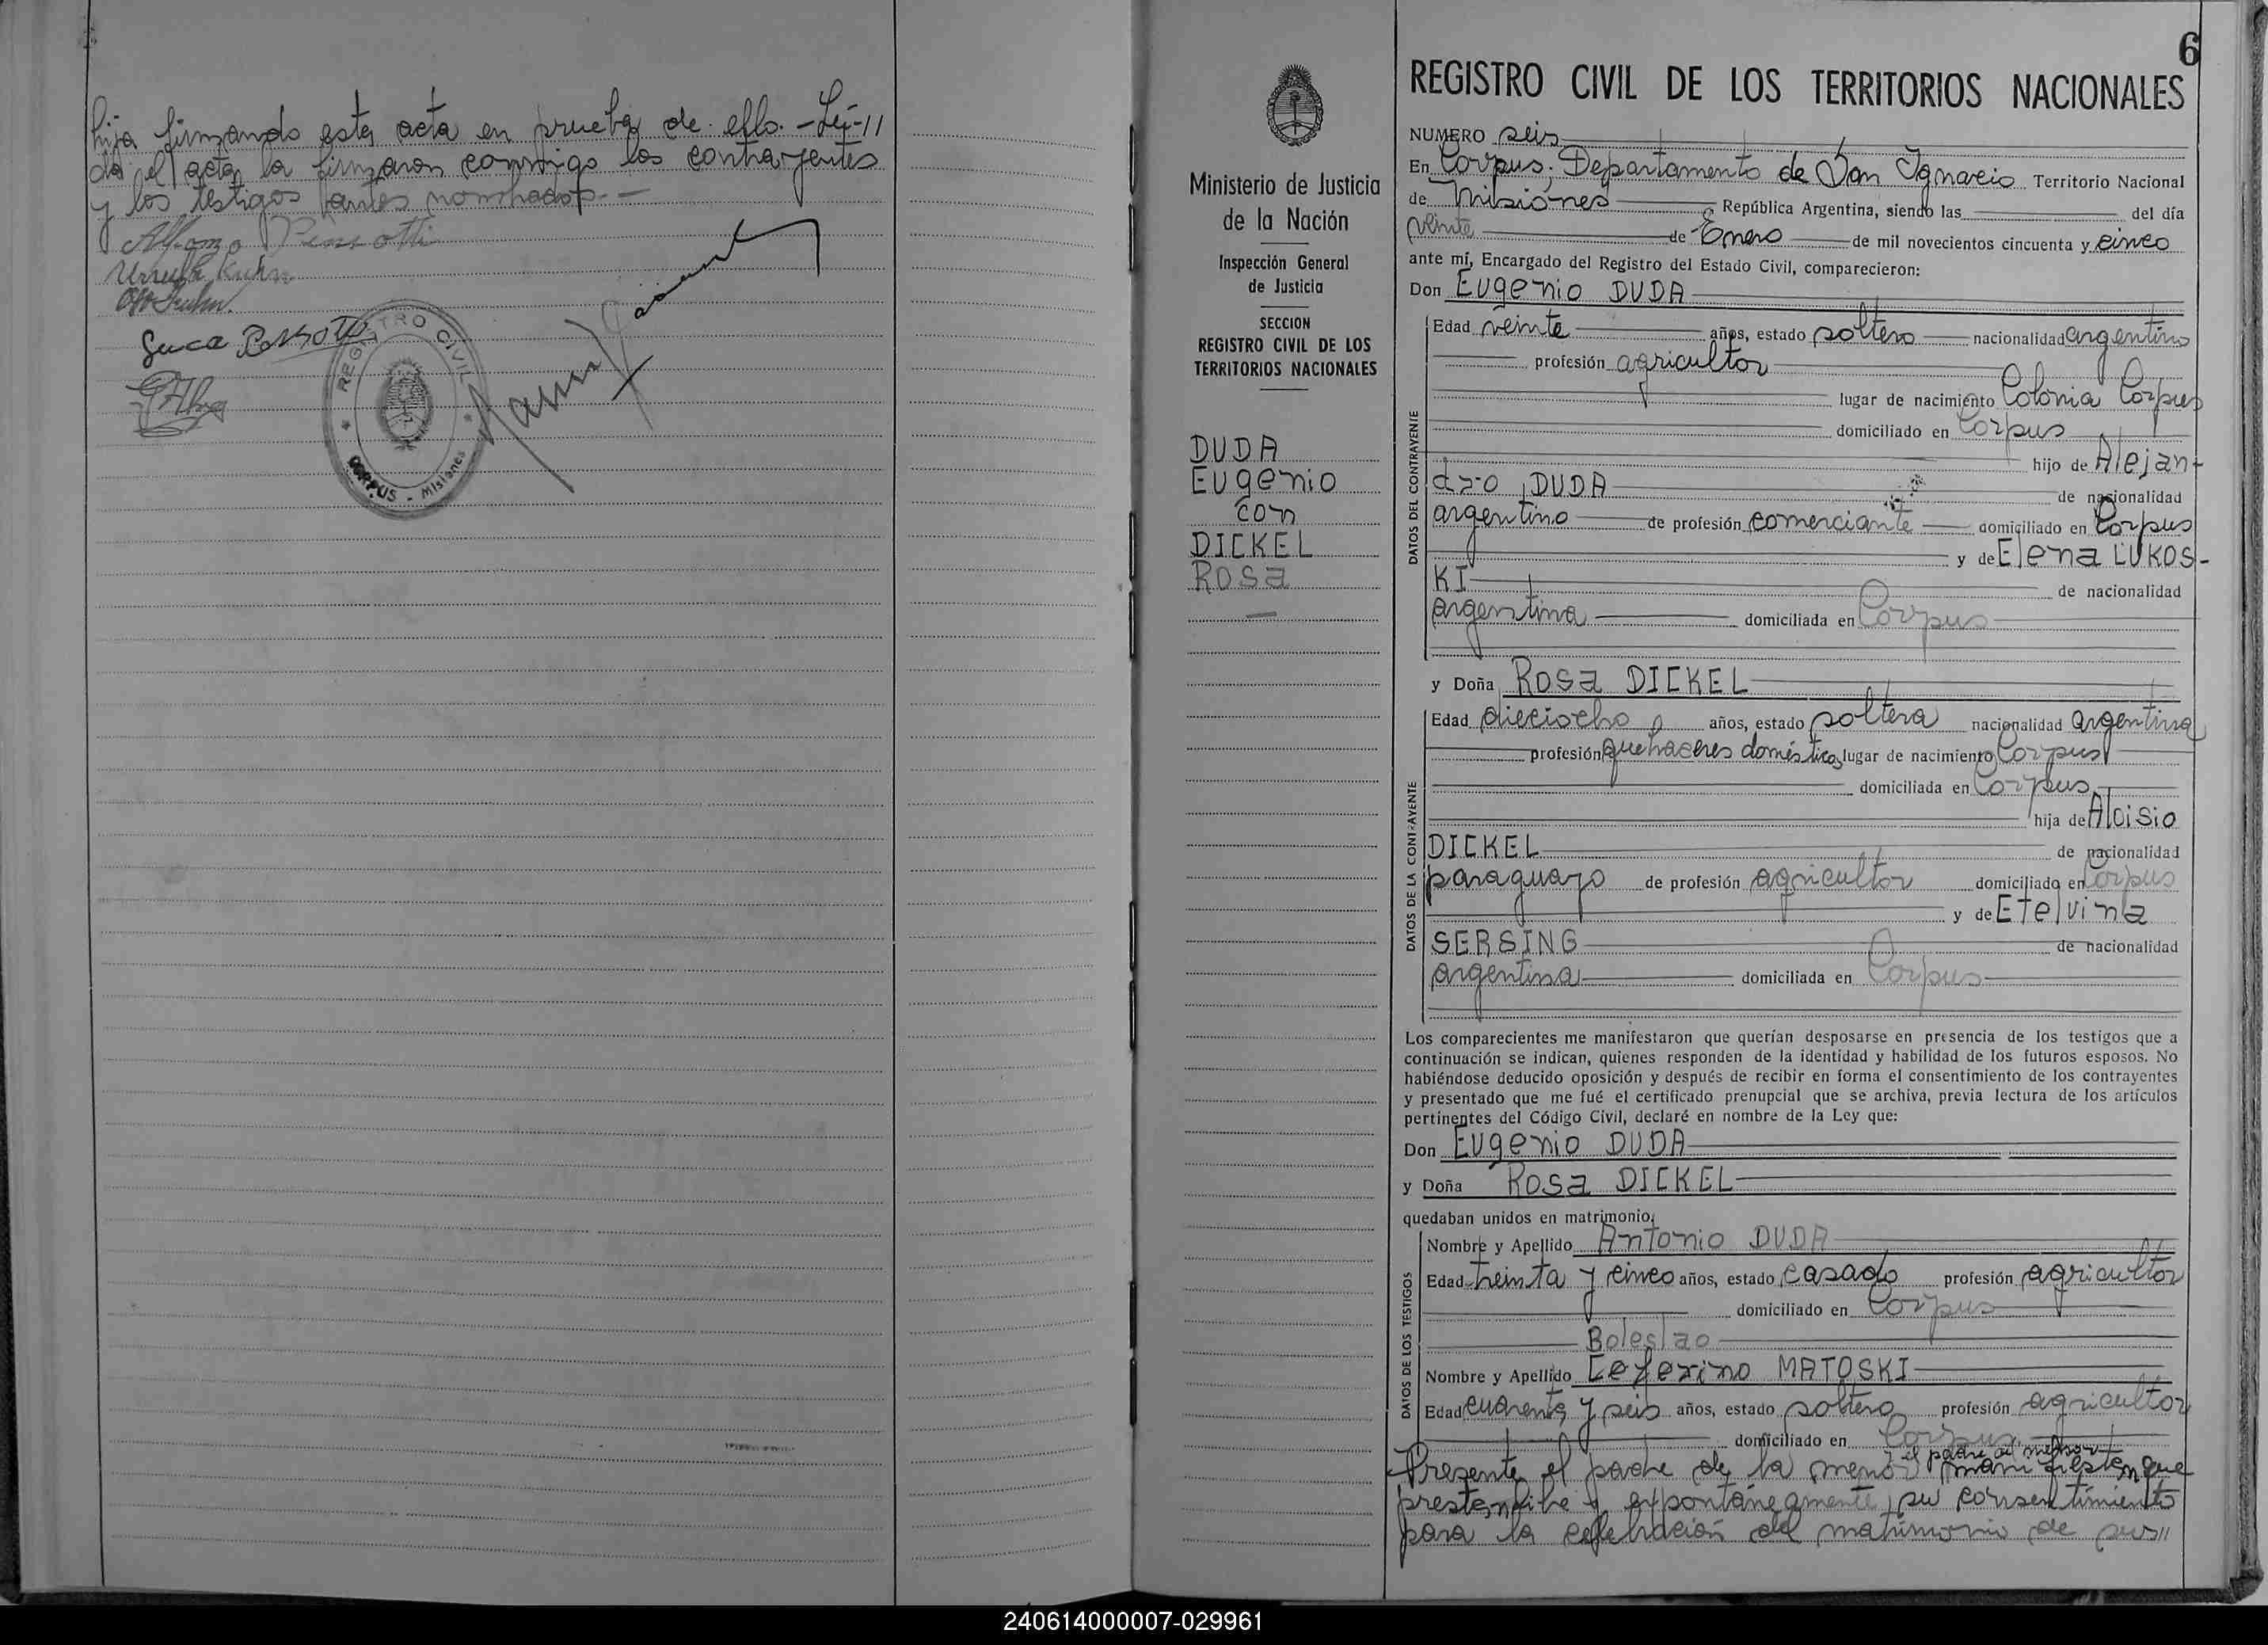 hija firmando esta acta en prueba de ello. - Leí-//
da el acta la firmaron conmigo los contrayentes
y los testigos antes nombrados. -
Alfonzo
Ursula Kuhn
Otto Kuhn.
REGISTRO CIVIL
CORPUS - Misiones
6
Ministerio de Justicia
de la Nación
Inspección General
de Justicia
SECCION
REGISTRO CIVIL DE LOS
TERRITORIOS NACIONALES
DUDA
Eugenio
con
DICKEL
Rosa
REGISTRO CIVIL DE LOS TERRITORIOS NACIONALES
NUMERO seis
En Corpus, Departamento de San Ignacio Territorio Nacional
de Misiones República Argentina, siendo las del día
veinte de Enero de mil novecientos cincuenta y cinco
ante mí, Encargado del Registro del Estado Civil, comparecieron:
Don Eugenio DUDA
DATOS DEL CONTRAYENTE
Edad veinte años, estado soltero nacionalidad argentino
profesión agricultor
lugar de nacimiento Colonia Corpus
domiciliado en Corpus
hijo de Alejan-
dro DUDA de nacionalidad
argentino de profesión comerciante domiciliado en Corpus
y de Elena LUKOS-
KI de nacionalidad
argentina domiciliada en Corpus
y Doña Rosa DICKEL
DATOS DE LA CONTRAYENTE
Edad dieciocho años, estado soltera nacionalidad argentina
profesión quehaceres domésticos lugar de nacimiento Corpus
domiciliada en Corpus
hija de Aloisio
DICKEL de nacionalidad
paraguayo de profesión agricultor domiciliado en Corpus
y de Etelvina
SERSING de nacionalidad
argentina domiciliada en Corpus
Los comparecientes me manifestaron que querían desposarse en presencia de los testigos que a
continuación se indican, quienes responden de la identidad y habilidad de los futuros esposos. No
habiéndose deducido oposición y después de recibir en forma el consentimiento de los contrayentes
y presentado que me fué el certificado prenupcial que se archiva, previa lectura de los artículos
pertinentes del Código Civil, declaré en nombre de la Ley que:
Don Eugenio DUDA
y Doña Rosa DICKEL
quedaban unidos en matrimonio.
DATOS DE LOS TESTIGOS
Nombre y Apellido Antonio DUDA
Edad treinta y cinco años, estado casado profesión agricultor
domiciliado en Corpus
Boleslao
Nombre y Apellido Ceferino MATOSKI
Edad cuarenta y seis años, estado soltero profesión agricultor
domiciliado en Corpus
y el padre del menor
Presente el padre de la menor manifiestan que
prestan libre y expontáneamente su consentimiento
para la celebración del matrimonio de sus//
240614000007-029961